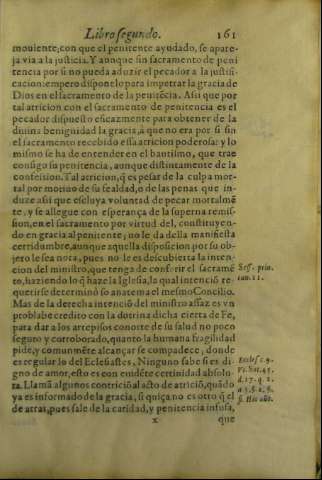 Libro segundo. 161
mouiente, con que el penitente ayudado, se apare-
ja via a la justicia. Y aunque sin sacramento de peni
tencia por si no pueda aduzir el pecador a la justifi-
cacion: empero disponelo para impetrar la gracia de
Dios en el sacramento de la penitēcia. Assi que por
tal atricion con el sacramento de penitencia es el
pecador dispuesto eficazmente para obtener de la
diuina benignidad la gracia, a que no era por si sin
el sacramento recebido essa atricion poderosa: y lo
mismo se ha de entender en el bautismo, que trae
consigo su penitencia, aunque distintamente de la
confession. Tal atricion, q̄ es pesar de la culpa mor-
tal por motiuo de su fealdad, o de las penas que in-
duze assi que escluya voluntad de pecar mortalmē
te, y se allegue con esperança de la superna remis-
sion, en el sacramento por virtud del, constituyen-
do en gracia al penitente, no le da della manifiesta
certidumbre, aunque aquella disposicion por su ob-
jero le sea nota, pues no le es descubierta la inten-
cion del ministro, que tenga de conferir el sacramē
to, haziendo lo q̄ haze la Iglesia, la qual intenciō re-
querirse determinò so anatema el mesmo Concilio.
Mas de la derecha intenciō del ministro assaz es vn
problabe credito con la dotrina dicha cierta de Fe,
para dar a los arrepisos conorte de su salud no poco
seguro y corroborado, quanto la humana fragilidad
pide, y comunmēte alcançar se compadece, donde
es regular lo del Eclesiastes, Ninguno sabe si es di-
gno de amor, esto es con euidēte certinidad absolu-
ta. Llamā algunos contriciō al acto de atriciō, quādo
ya es informado de la gracia, si quiça no es otro q̄ el
de atras, pues sale de la caridad, y penitencia infusa,
x que
Sess. prio.
can. 11.
Ecclesi. c. 9.